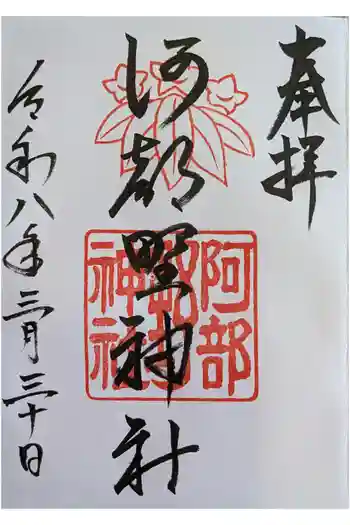 奉拝
阿部野神社
阿部野神社
令和八年三月三十日